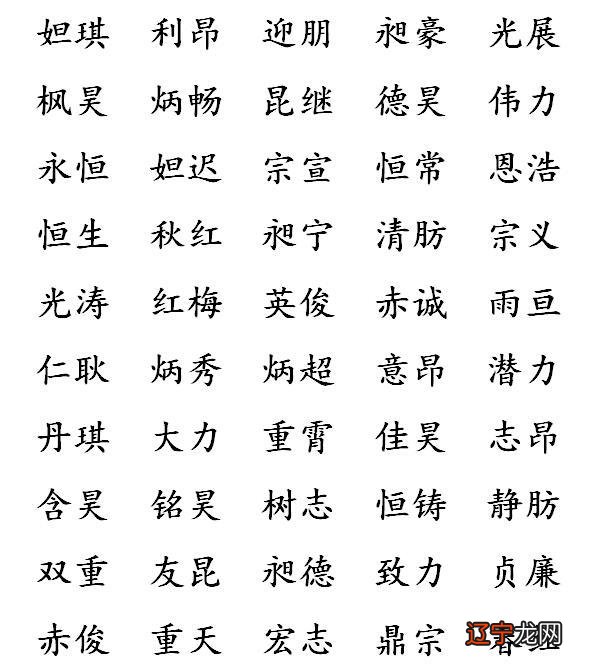 妲琪 利昂 迎朋 昶豪 光展
枫昊 炳畅 昆继 德昊 伟力
永恒 妲迟 宗宣 恒常 恩浩
恒生 秋红 昶宁 清肪 宗义
光涛 红梅 英俊 赤诚 雨亘
仁耿 炳秀 炳超 意昂 潜力
丹琪 大力 重霄 佳昊 志昂
含昊 铭昊 树志 恒铸 静肪
双重 友昆 昶德 致力 贞廉
赤俊 重天 宏志 鼎宗
辽宁龙网